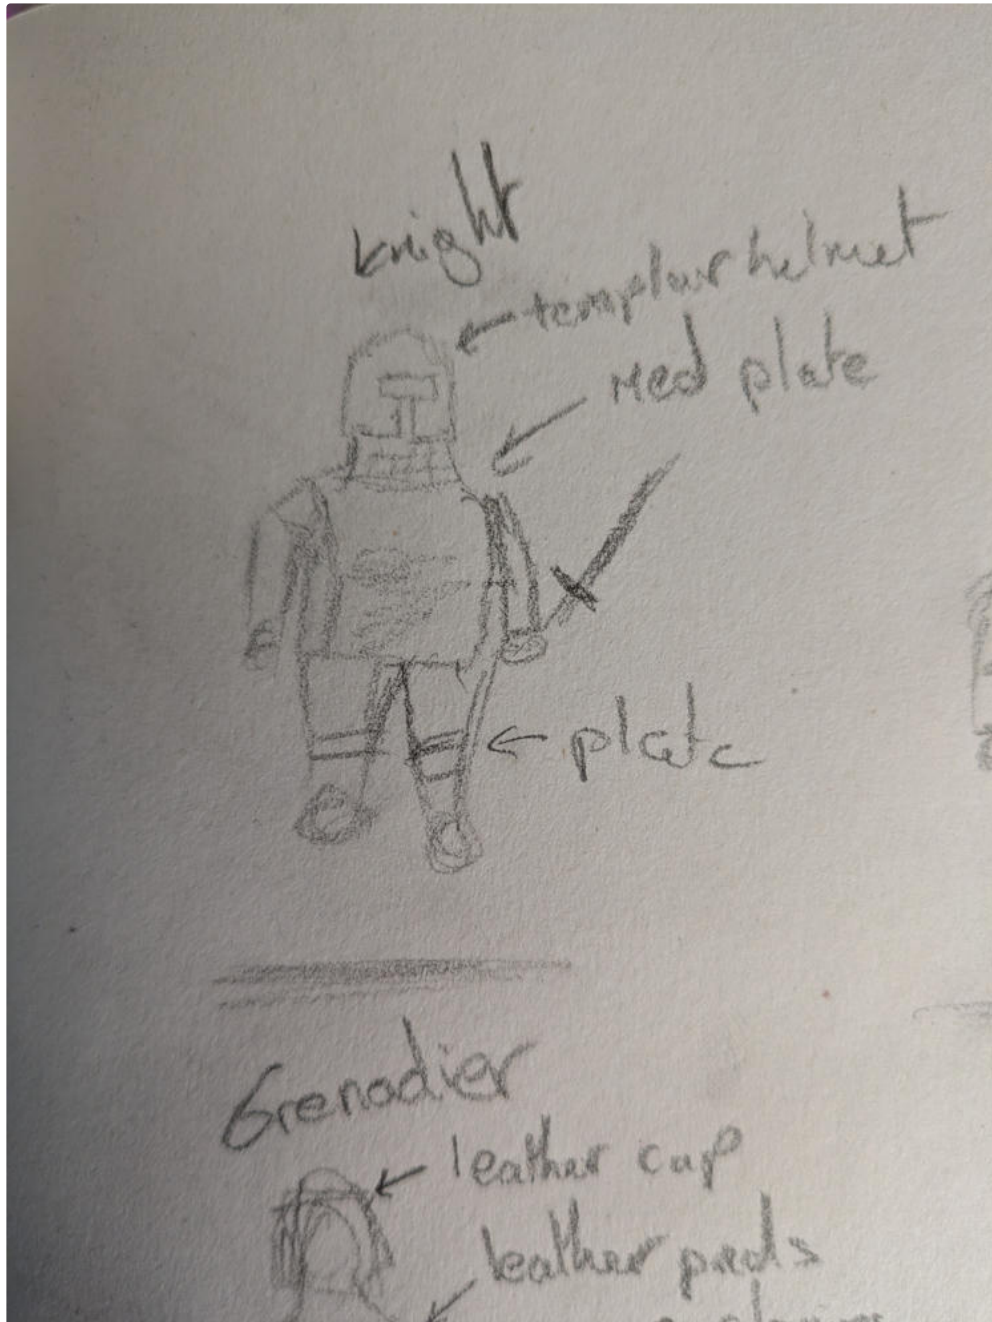 knight
templar helmet
med plate
plate
Grenadier
leather cap
leather pads